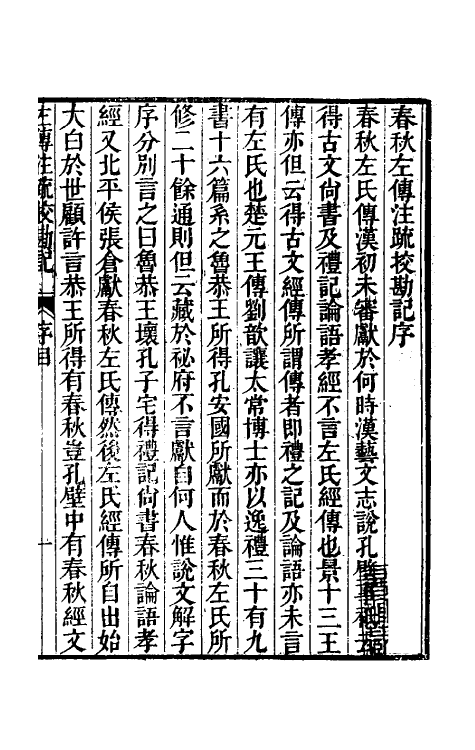 春秋左傳注䟽挍勘記序
春秋左氏傳漢初未審獻於何時漢藝文志說孔
得古文尙書及禮記論語孝經不言左氏經傳也景十三王
傳亦但云得古文經傳所謂傳者卽禮之記及論語亦未言
有左氏也楚元王傳劉歆讓太常博士亦以逸禮三十有九
書十六篇系之魯恭王所得孔安國所獻而於春秋左氏所
修二十餘通則但云藏於祕府不言獻自何人惟說文解字
序分別言之曰魯恭王壞孔子宅得禮記尙書春秋論語孝
經又北平侯張倉獻春秋左氏傳然後左氏經傳所自出始
大白於世顧許言恭王所得有春秋豈孔壁中有春秋經文
左傳注疏挍勘記 序目 一